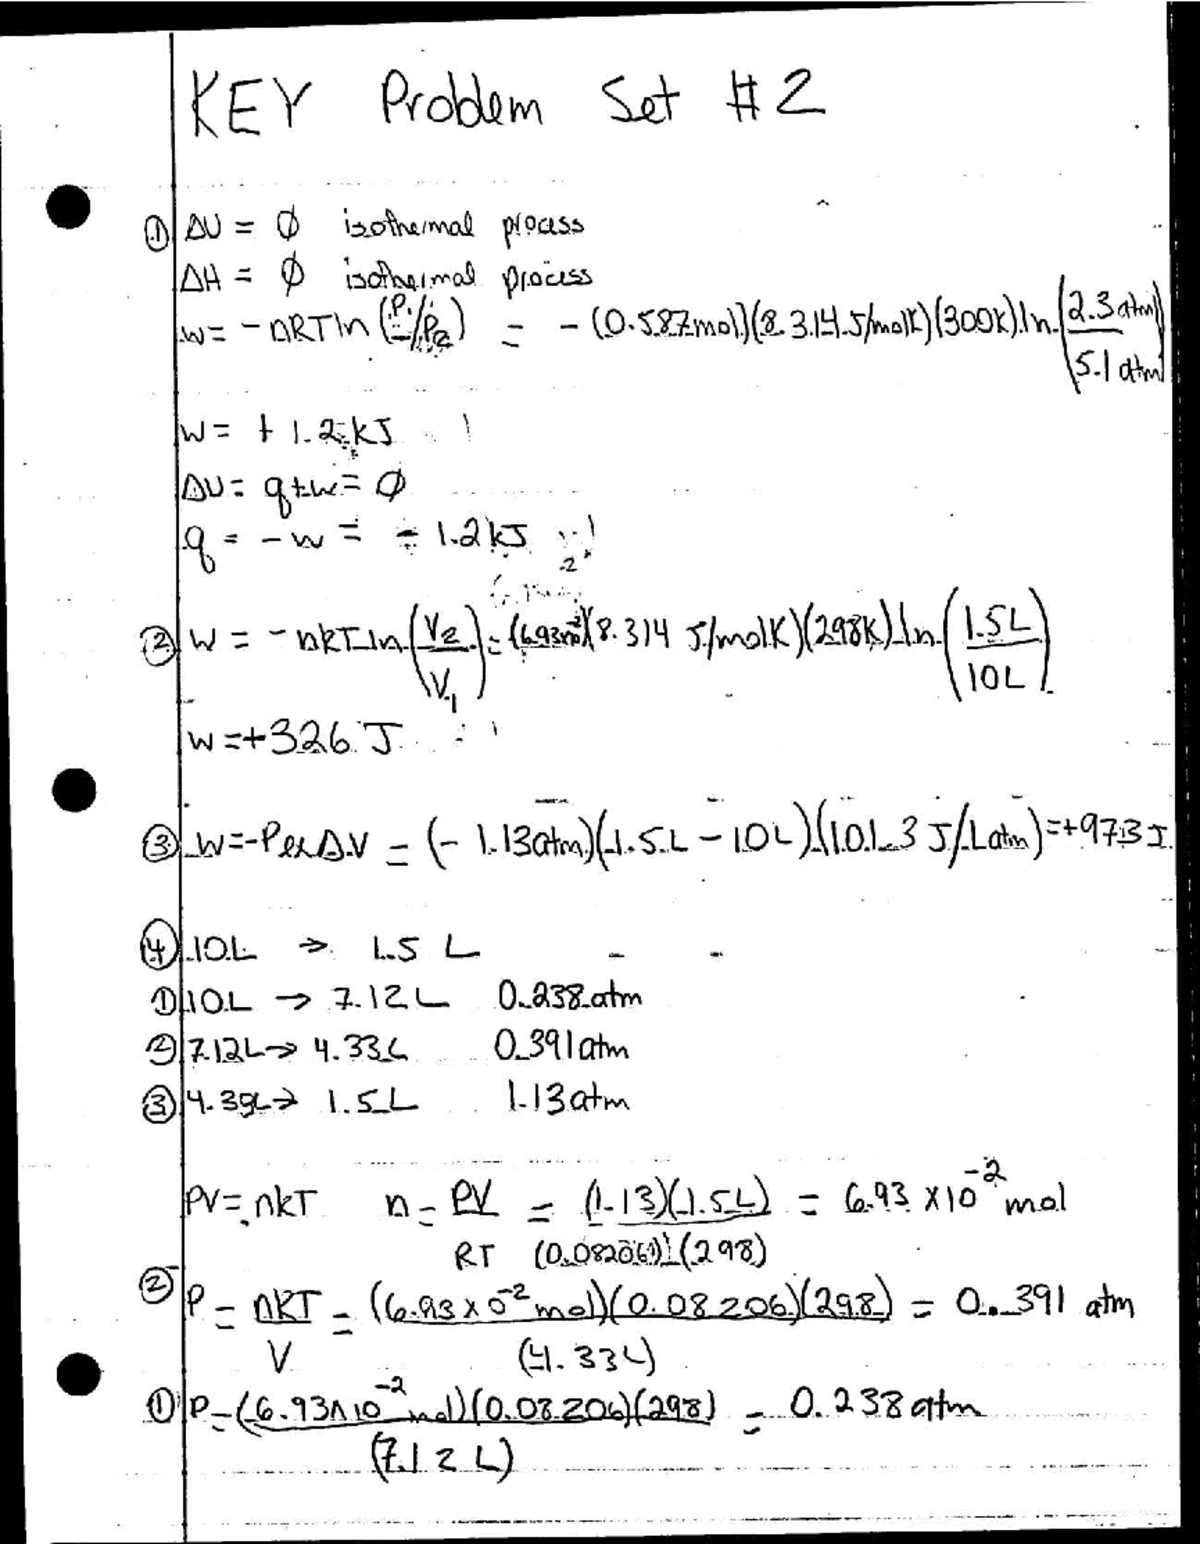 KEY Problem Set #2
① ΔU = ∅ isothermal process
ΔH = ∅ isothermal process
w = -nRTln(P₁/P₂) = -(0.587mol)(8.314J/molK)(300K)ln(2.3atm/5.1atm)
w = +1.2kJ
ΔU = q+w = ∅
q = -w = -1.2kJ
② w = -nRTln(V₂/V₁) = (6.93x10⁻²)(8.314 J/molK)(298K)ln(1.5L/10L)
w = +326 J
③ w = -PexΔV = (-1.13atm)(1.5L - 10L)(101.3 J/Latm) = +973J
④ 10L → 1.5 L
① 10L → 7.12L 0.238atm
② 7.12L → 4.33L 0.391atm
③ 4.39L → 1.5L 1.13atm
PV = nRT n = PV/RT = (1.13)(1.5L)/(0.08206)(298) = 6.93 x10⁻² mol
② P = nRT/V = (6.93x10⁻² mol)(0.08206)(298)/(4.33L) = 0.391 atm
① P = (6.93x10⁻² mol)(0.08206)(298)/(7.12L) = 0.238atm